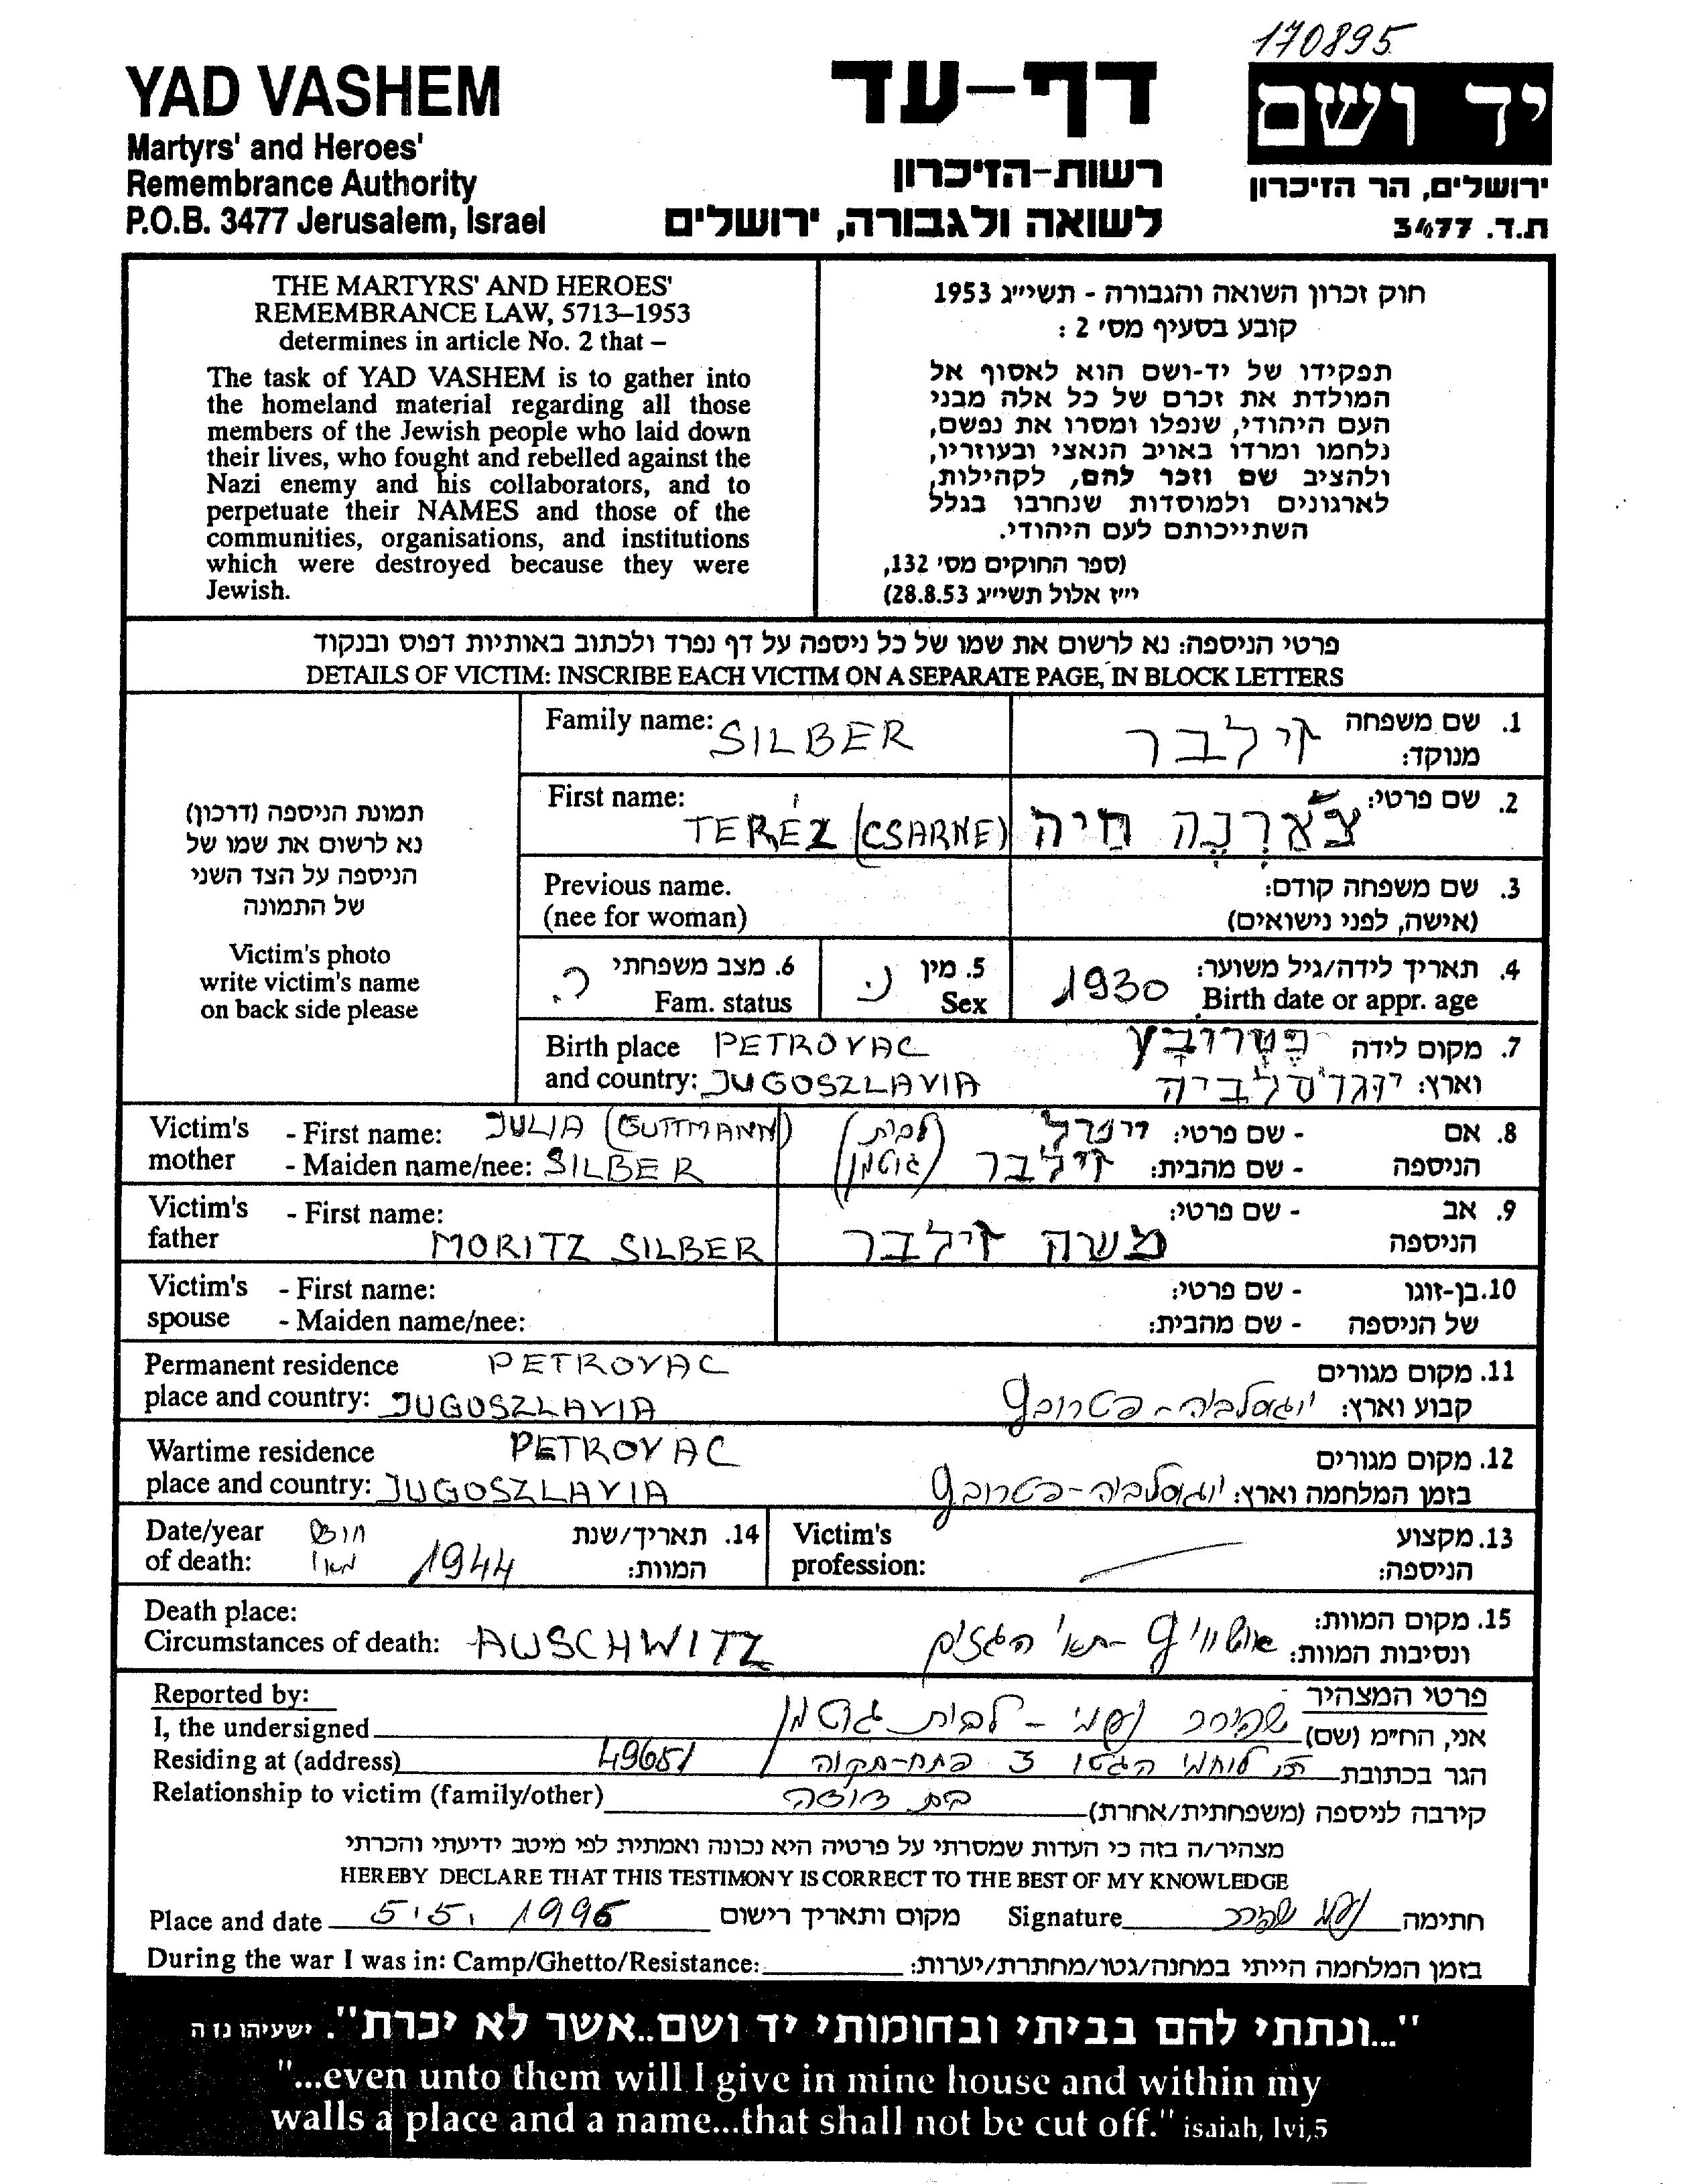 170895
YAD VASHEM
Martyrs' and Heroes'
Remembrance Authority
P.O.B. 3477 Jerusalem, Israel
דף-עד
רשות-הזיכרון
לשואה ולגבורה, ירושלים
יד ושם
ירושלים, הר הזיכרון
ת.ד. 3477
THE MARTYRS' AND HEROES'
REMEMBRANCE LAW, 5713–1953
determines in article No. 2 that –
The task of YAD VASHEM is to gather into
the homeland material regarding all those
members of the Jewish people who laid down
their lives, who fought and rebelled against the
Nazi enemy and his collaborators, and to
perpetuate their NAMES and those of the
communities, organisations, and institutions
which were destroyed because they were
Jewish.
חוק זכרון השואה והגבורה - תשי״ג 1953
קובע בסעיף מס׳ 2 :
תפקידו של יד-ושם הוא לאסוף אל
המולדת את זכרם של כל אלה מבני
העם היהודי, שנפלו ומסרו את נפשם,
נלחמו ומרדו באויב הנאצי ובעוזריו,
ולהציב שם וזכר להם, לקהילות,
לארגונים ולמוסדות שנחרבו בגלל
השתייכותם לעם היהודי.
(ספר החוקים מס׳ 132,
י״ז אלול תשי״ג 28.8.53)
פרטי הניספה: נא לרשום את שמו של כל ניספה על דף נפרד ולכתוב באותיות דפוס ובנקוד
DETAILS OF VICTIM: INSCRIBE EACH VICTIM ON A SEPARATE PAGE, IN BLOCK LETTERS
תמונת הניספה (דרכון)
נא לרשום את שמו של
הניספה על הצד השני
של התמונה
Victim's photo
write victim's name
on back side please
Family name: SILBER
1. שם משפחה זילבר
מנוקד:
First name: TERÉZ (CSARNE)
2. שם פרטי: צֹאַרְנֶה חַיה
Previous name.
(nee for woman)
3. שם משפחה קודם:
(אישה, לפני נישואים)
4. תאריך לידה/גיל משוער:
Birth date or appr. age 1930
5. מין נ.
Sex
6. מצב משפחתי ר.
Fam. status
Birth place PETROVAC
and country: JUGOSZLAVIA
7. מקום לידה פֶטְרוֹבָץ
וארץ: יוגוסלביה
Victim's - First name: JULIA (GUTTMANN)
mother - Maiden name/nee: SILBER
8. אם - שם פרטי: (לבית
הניספה - שם מהבית: זילבר גוטמן)
Victim's - First name:
father MORITZ SILBER
9. אב - שם פרטי:
הניספה משה זילבר
Victim's - First name:
spouse - Maiden name/nee:
10. בן-זוגו - שם פרטי:
של הניספה - שם מהבית:
Permanent residence PETROVAC
place and country: JUGOSZLAVIA
11. מקום מגורים
קבוע וארץ: יוגוסלביה - פטרובץ
Wartime residence PETROVAC
place and country: JUGOSZLAVIA
12. מקום מגורים
בזמן המלחמה וארץ: יוגוסלביה - פטרובץ
Date/year חודש
of death: מאי 1944
14. תאריך/שנת
המוות:
Victim's
profession:
13. מקצוע
הניספה:
Death place:
Circumstances of death: AUSCHWITZ
15. מקום המוות:
ונסיבות המוות: אושוויץ - תאי הגזים
Reported by:
פרטי המצהיר
I, the undersigned
אני, הח״מ (שם) נעמי - לבית גוטמן
Residing at (address) 49651
הגר בכתובת לוחמי הגטו 3 פתח-תקוה
Relationship to victim (family/other)
קירבה לניספה (משפחתית/אחרת) בת דודה
מצהיר/ה בזה כי העדות שמסרתי על פרטיה היא נכונה ואמתית לפי מיטב ידיעתי והכרתי
HEREBY DECLARE THAT THIS TESTIMONY IS CORRECT TO THE BEST OF MY KNOWLEDGE
Place and date 5.5.1996 מקום ותאריך רישום
Signature חתימה
During the war I was in: Camp/Ghetto/Resistance:
בזמן המלחמה הייתי במחנה/גטו/מחתרת/יערות:
"...ונתתי להם בביתי ובחומותי יד ושם..אשר לא יכרת". ישעיהו נו ה
"...even unto them will I give in mine house and within my
walls a place and a name...that shall not be cut off." isaiah, lvi,5